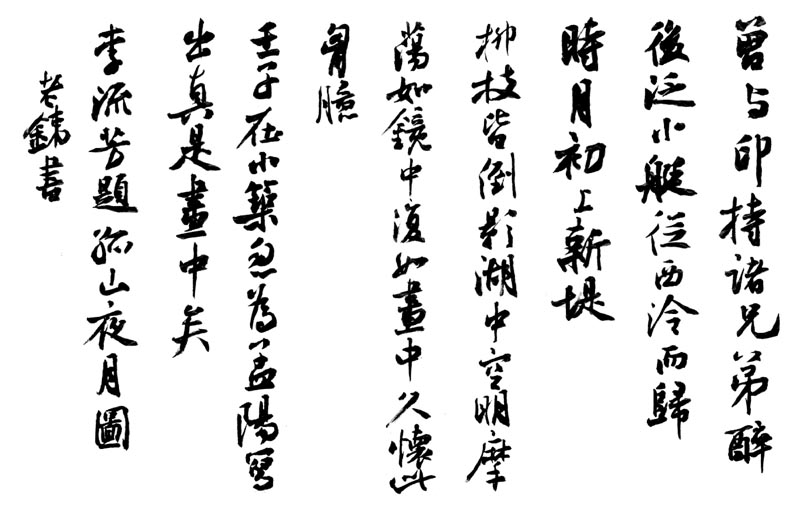 曾与印持諸兄弟醉
後泛小艇從西泠而歸
時月初上新堤
柳枝皆倒影湖中空明摩
蕩如鏡中復如畫中久懷此
胷臆
壬子在小築忽為孟陽寫
出真是畫中矣
李流芳題孤山夜月圖
老鐵書